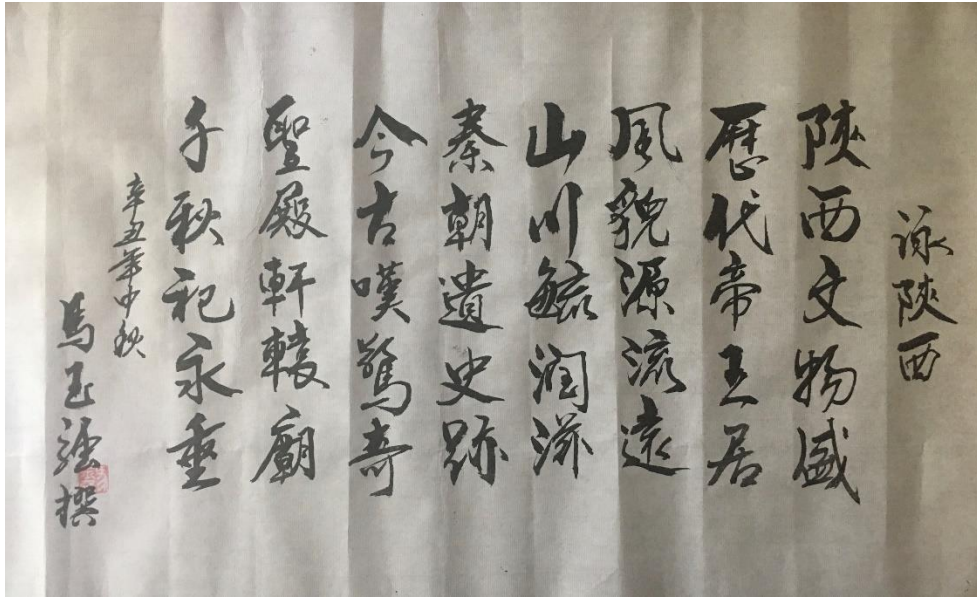 詠陝西
陝西文物盛
歷代帝王居
風貌源流遠
山川毓潤滋
秦朝遺史跡
今古嘆驚奇
聖殿軒轅廟
千秋祀永垂
辛丑年中秋
馬玉強撰